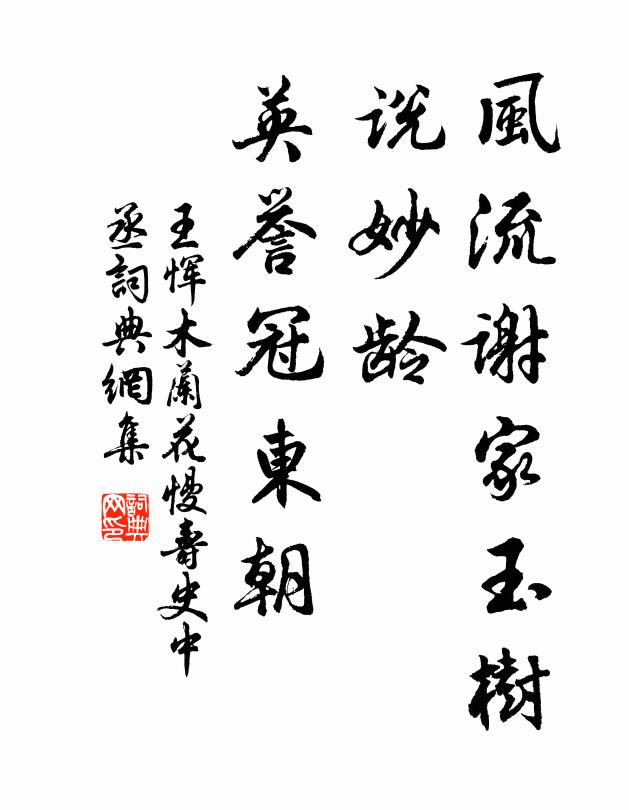 風流谢家玉樹
说妙龄
英誉冠東朝
王惲木蘭花慢壽史中
丞詞典網集
詞典
网印